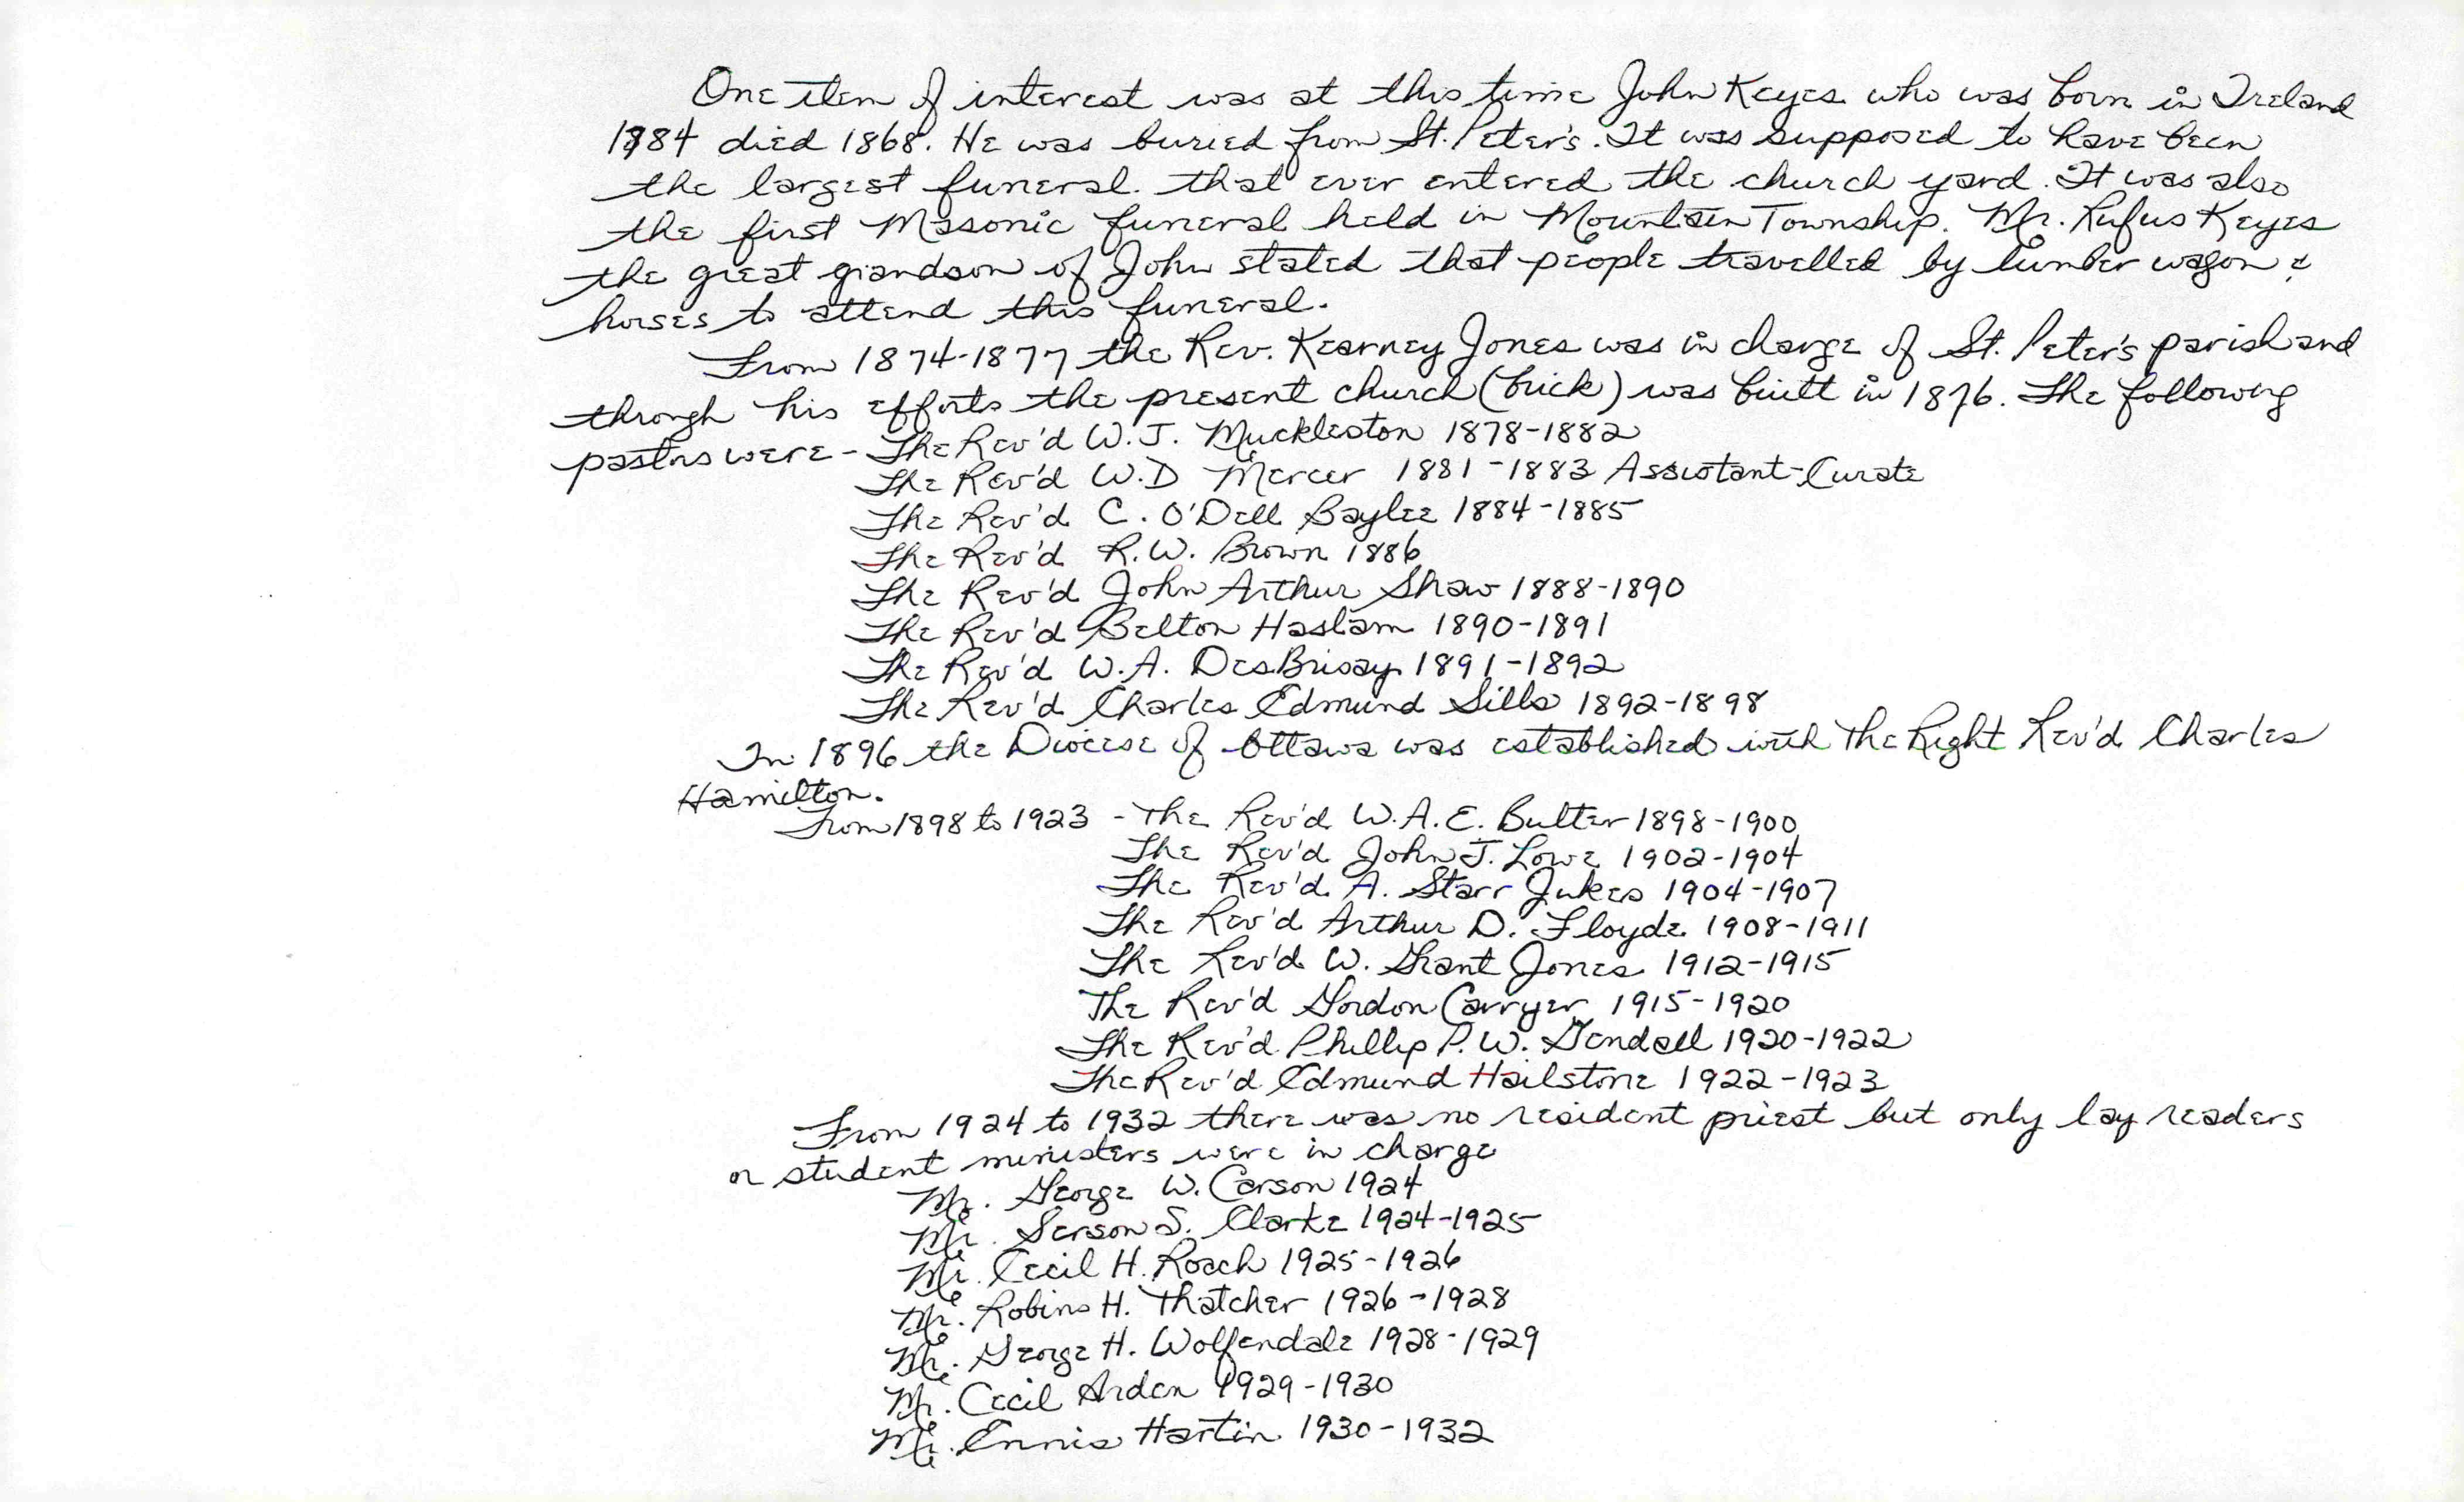 One item of interest was at this time John Keyes who was born in Ireland
1784 died 1868. He was buried from St. Peter's. It was supposed to have been
the largest funeral that ever entered the church yard. It was also
the first Masonic funeral held in Mountain Township. Mr. Rufus Keyes
the great grandson of John stated that people travelled by lumber wagon &
horses to attend this funeral.
From 1874-1877 the Rev. Kearney Jones was in charge of St. Peter's parish and
through his efforts the present church (brick) was built in 1876. The following
pastors were - The Rev'd W.J. Muckleston 1878-1882
The Rev'd W.D Mercer 1881-1883 Assistant-Curate
The Rev'd C. O'Dell Baylee 1884-1885
The Rev'd R.W. Brown 1886
The Rev'd John Arthur Shaw 1888-1890
The Rev'd Belton Haslam 1890-1891
The Rev'd W.A. DesBrisay 1891-1892
The Rev'd Charles Edmund Sills 1892-1898
In 1896 the Diocese of Ottawa was established with The Right Rev'd Charles
Hamilton.
From 1898 to 1923 - The Rev'd W.A.E. Butler 1898-1900
The Rev'd John J. Lowe 1902-1904
The Rev'd A. Starr Jukes 1904-1907
The Rev'd Arthur D. Floyde 1908-1911
The Rev'd W. Grant Jones 1912-1915
The Rev'd Gordon Carryer 1915-1920
The Rev'd Phillip P.W. Gendall 1920-1922
The Rev'd Edmund Hailstone 1922-1923
From 1924 to 1932 there was no resident priest but only lay readers
or student ministers were in charge
Mr. George W. Carson 1924
Mr. Serson S. Clarke 1924-1925
Mr. Cecil H. Roach 1925-1926
Mr. Robins H. Thatcher 1926-1928
Mr. George H. Wolfendale 1928-1929
Mr. Cecil Arden 1929-1930
Mr. Ennis Hartin 1930-1932